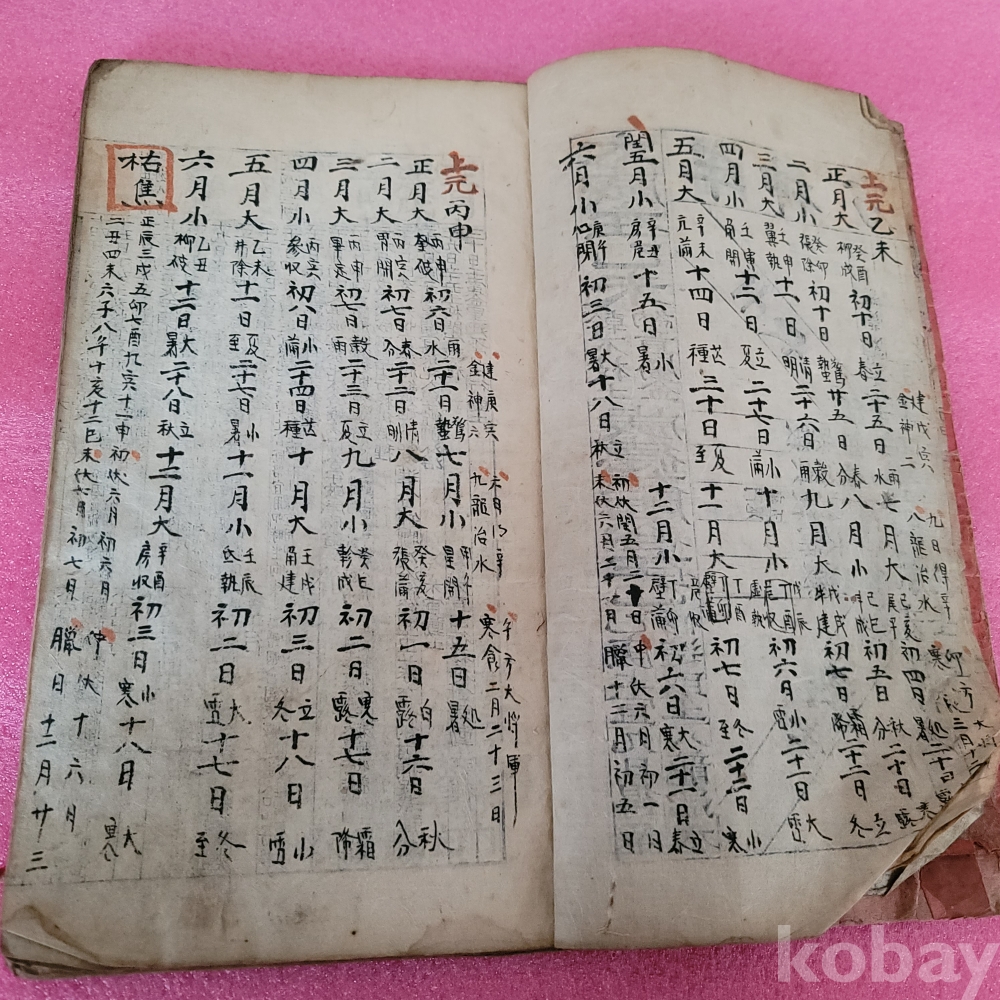 上元乙未
建戊寅 金神二
九日得辛 八龍治水
正月大 癸酉 柳成 初十日 立春 二十五日 雨水 七月大 己亥 尾平 初四日 処暑 二十日
二月小 癸卯 張除 初十日 驚蟄 廿五日 春分 八月小 己巳 初五日 秋分 二十日 寒露
三月大 壬申 翼執 十一日 清明 二十六日 穀雨 九月大 戊戌 牛建 初七日 霜降 二十二日 立冬
四月小 壬寅 角開 十二日 立夏 二十七日 小滿 十月小 戊辰 虛執 初六日 小雪 二十一日 大雪
五月大 辛未 亢滿 十四日 芒種 三十日 夏至 十一月大 丁酉 危収 初七日 冬至 二十二日 小寒
閏五月小 辛丑 房危 十五日 小暑 十二月小 壁滿 初六日 大寒 二十一日 立春
六月小 庚午 心閉 初三日 大暑 十八日 立秋 初伏閏五月二十日 中伏六月初一日
末伏六月二十 臘十二月初五日
上元丙申
建庚寅 金神六
九龍治水
午方大將軍 寒食二月二十三日
正月大 丙申 奎破 初六日 雨水 二十一日 驚蟄 七月小 甲午 星開 十五日 処暑
二月小 丙寅 胃開 初七日 春分 二十二日 清明 八月大 癸亥 張滿 初一日 白露 十六日 秋分
三月大 畢 初七日 穀雨 二十三日 立夏 九月小 癸巳 成 初二日 寒露 十七日 霜降
四月小 參収 初八日 小滿 二十四日 芒種 十月大 壬戌 角建 初三日 立冬 十八日 小雪
五月大 乙未 井除 十一日 夏至 二十七日 小暑 十一月小 壬辰 氐執 初二日 大雪 十七日 冬至
六月小 乙丑 柳破 十二日 大暑 二十八日 立秋 十二月大 辛酉 房収 初三日 小寒 十八日 大寒
枯焦 正辰三戌五卯七酉九亥十一申 初伏六月初六日 中伏十六日
二丑四未六子八午十亥十二巳 末伏七月初七日 臘日十二月廿三
kobay